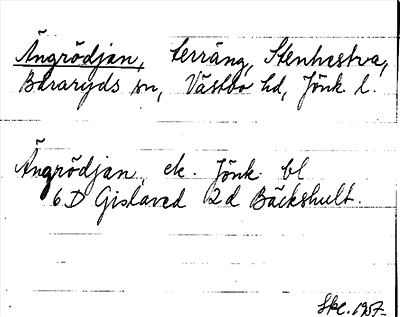 Ängrödjan, terräng, Stenhestra,
Bararyds sn, Västbo hd, Jönk. l.
Ängrödjan, ek. Jönk. bl
6 D Gislaved 2 d Bäckshult.
Skr. 1957